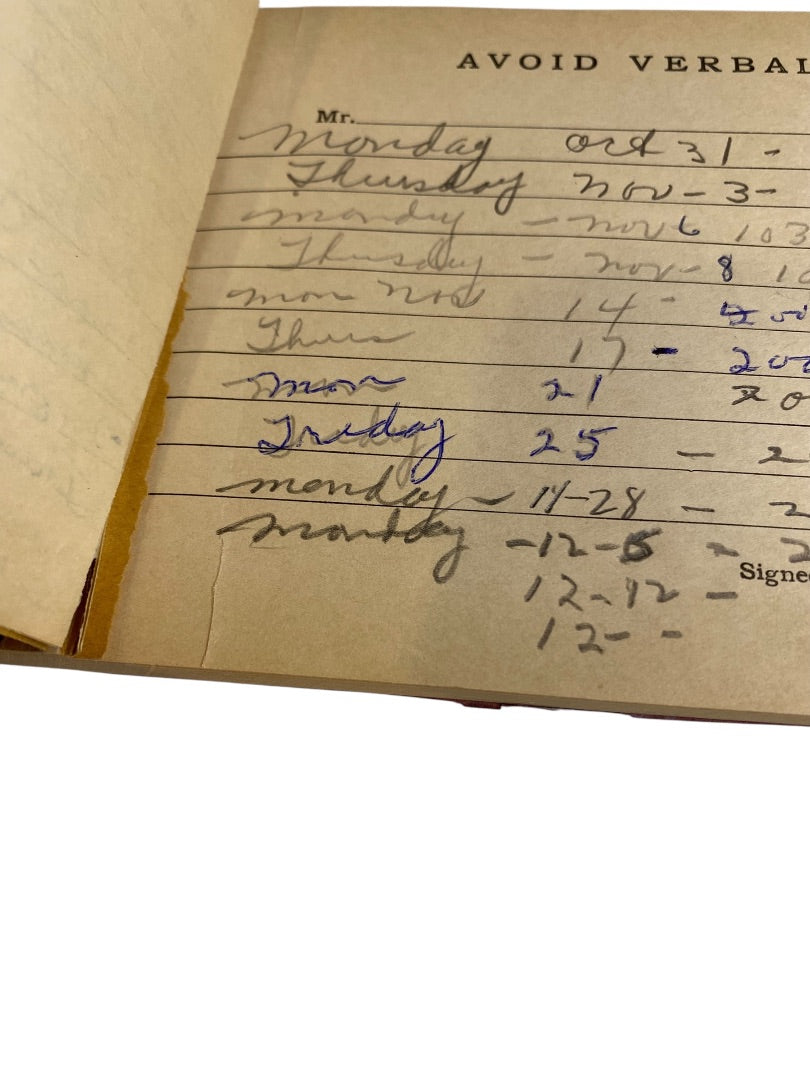 AVOID VERBAL
Mr.
Monday Oct 31 -
Thursday Nov - 3 -
Monday - Nov 6 103
Thursday - Nov - 8 10
Mon Nov 14 -
Thurs 17 - 200
Mon 21 20
Friday 25 - 2
Monday - 11-28 - 2
Monday - 12-5 - 2
Signe
12-12 -
12- -